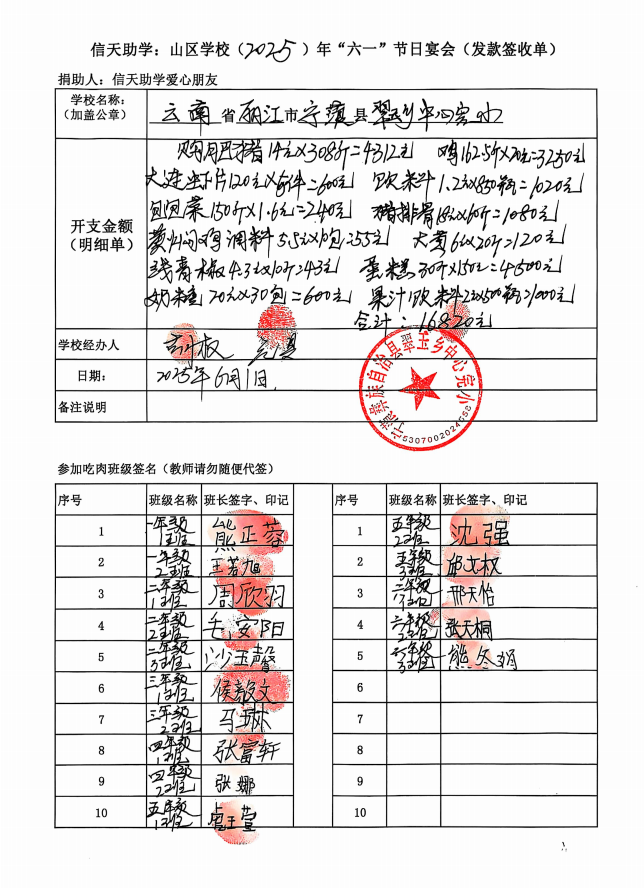 信天助学：山区学校（2025）年“六一”节日宴会（发款签收单）
捐助人：信天助学爱心朋友
学校名称：
（加盖公章）
云南省丽江市宁蒗县翠玉乡中心完小
开支金额
（明细单）
购肥猪14元X308斤=4312元 鸡162.5斤X20元=3250元
大连虾片120元X5件=600元 饮料1.2元X850瓶=1020元
包包菜150斤X1.6元=240元 猪排骨18元X60斤=1080元
黄焖鸡调料5.5元X10包=55元 大黄6元X20斤=120元
线青椒4.3元X10斤=43元 蛋糕30斤X150元=4500元
奶糖20元X30包=600元 果汁饮料2元X500瓶=1000元
合计：16820元
学校经办人
日期：
2025年6月1日
备注说明
宁蒗彝族自治县翠玉乡中心完小
5307002024558
参加吃肉班级签名（教师请勿随便代签）
序号 班级名称 班长签字、印记 序号 班级名称 班长签字、印记
1 一年级1班 熊正蓉 1 五年级2班 沈强
2 一年级2班 王若旭 2 五年级3班 邱文权
3 二年级1班 周欣羽 3 六年级1班 邢天怡
4 二年级2班 安阳 4 六年级2班 张天桐
5 二年级3班 沙玉馨 5 六年级3班 熊冬娟
6 三年级1班 侯毅文 6
7 三年级2班 马琳 7
8 四年级1班 张富轩 8
9 四年级2班 张娜 9
10 五年级1班 卢玉萱 10